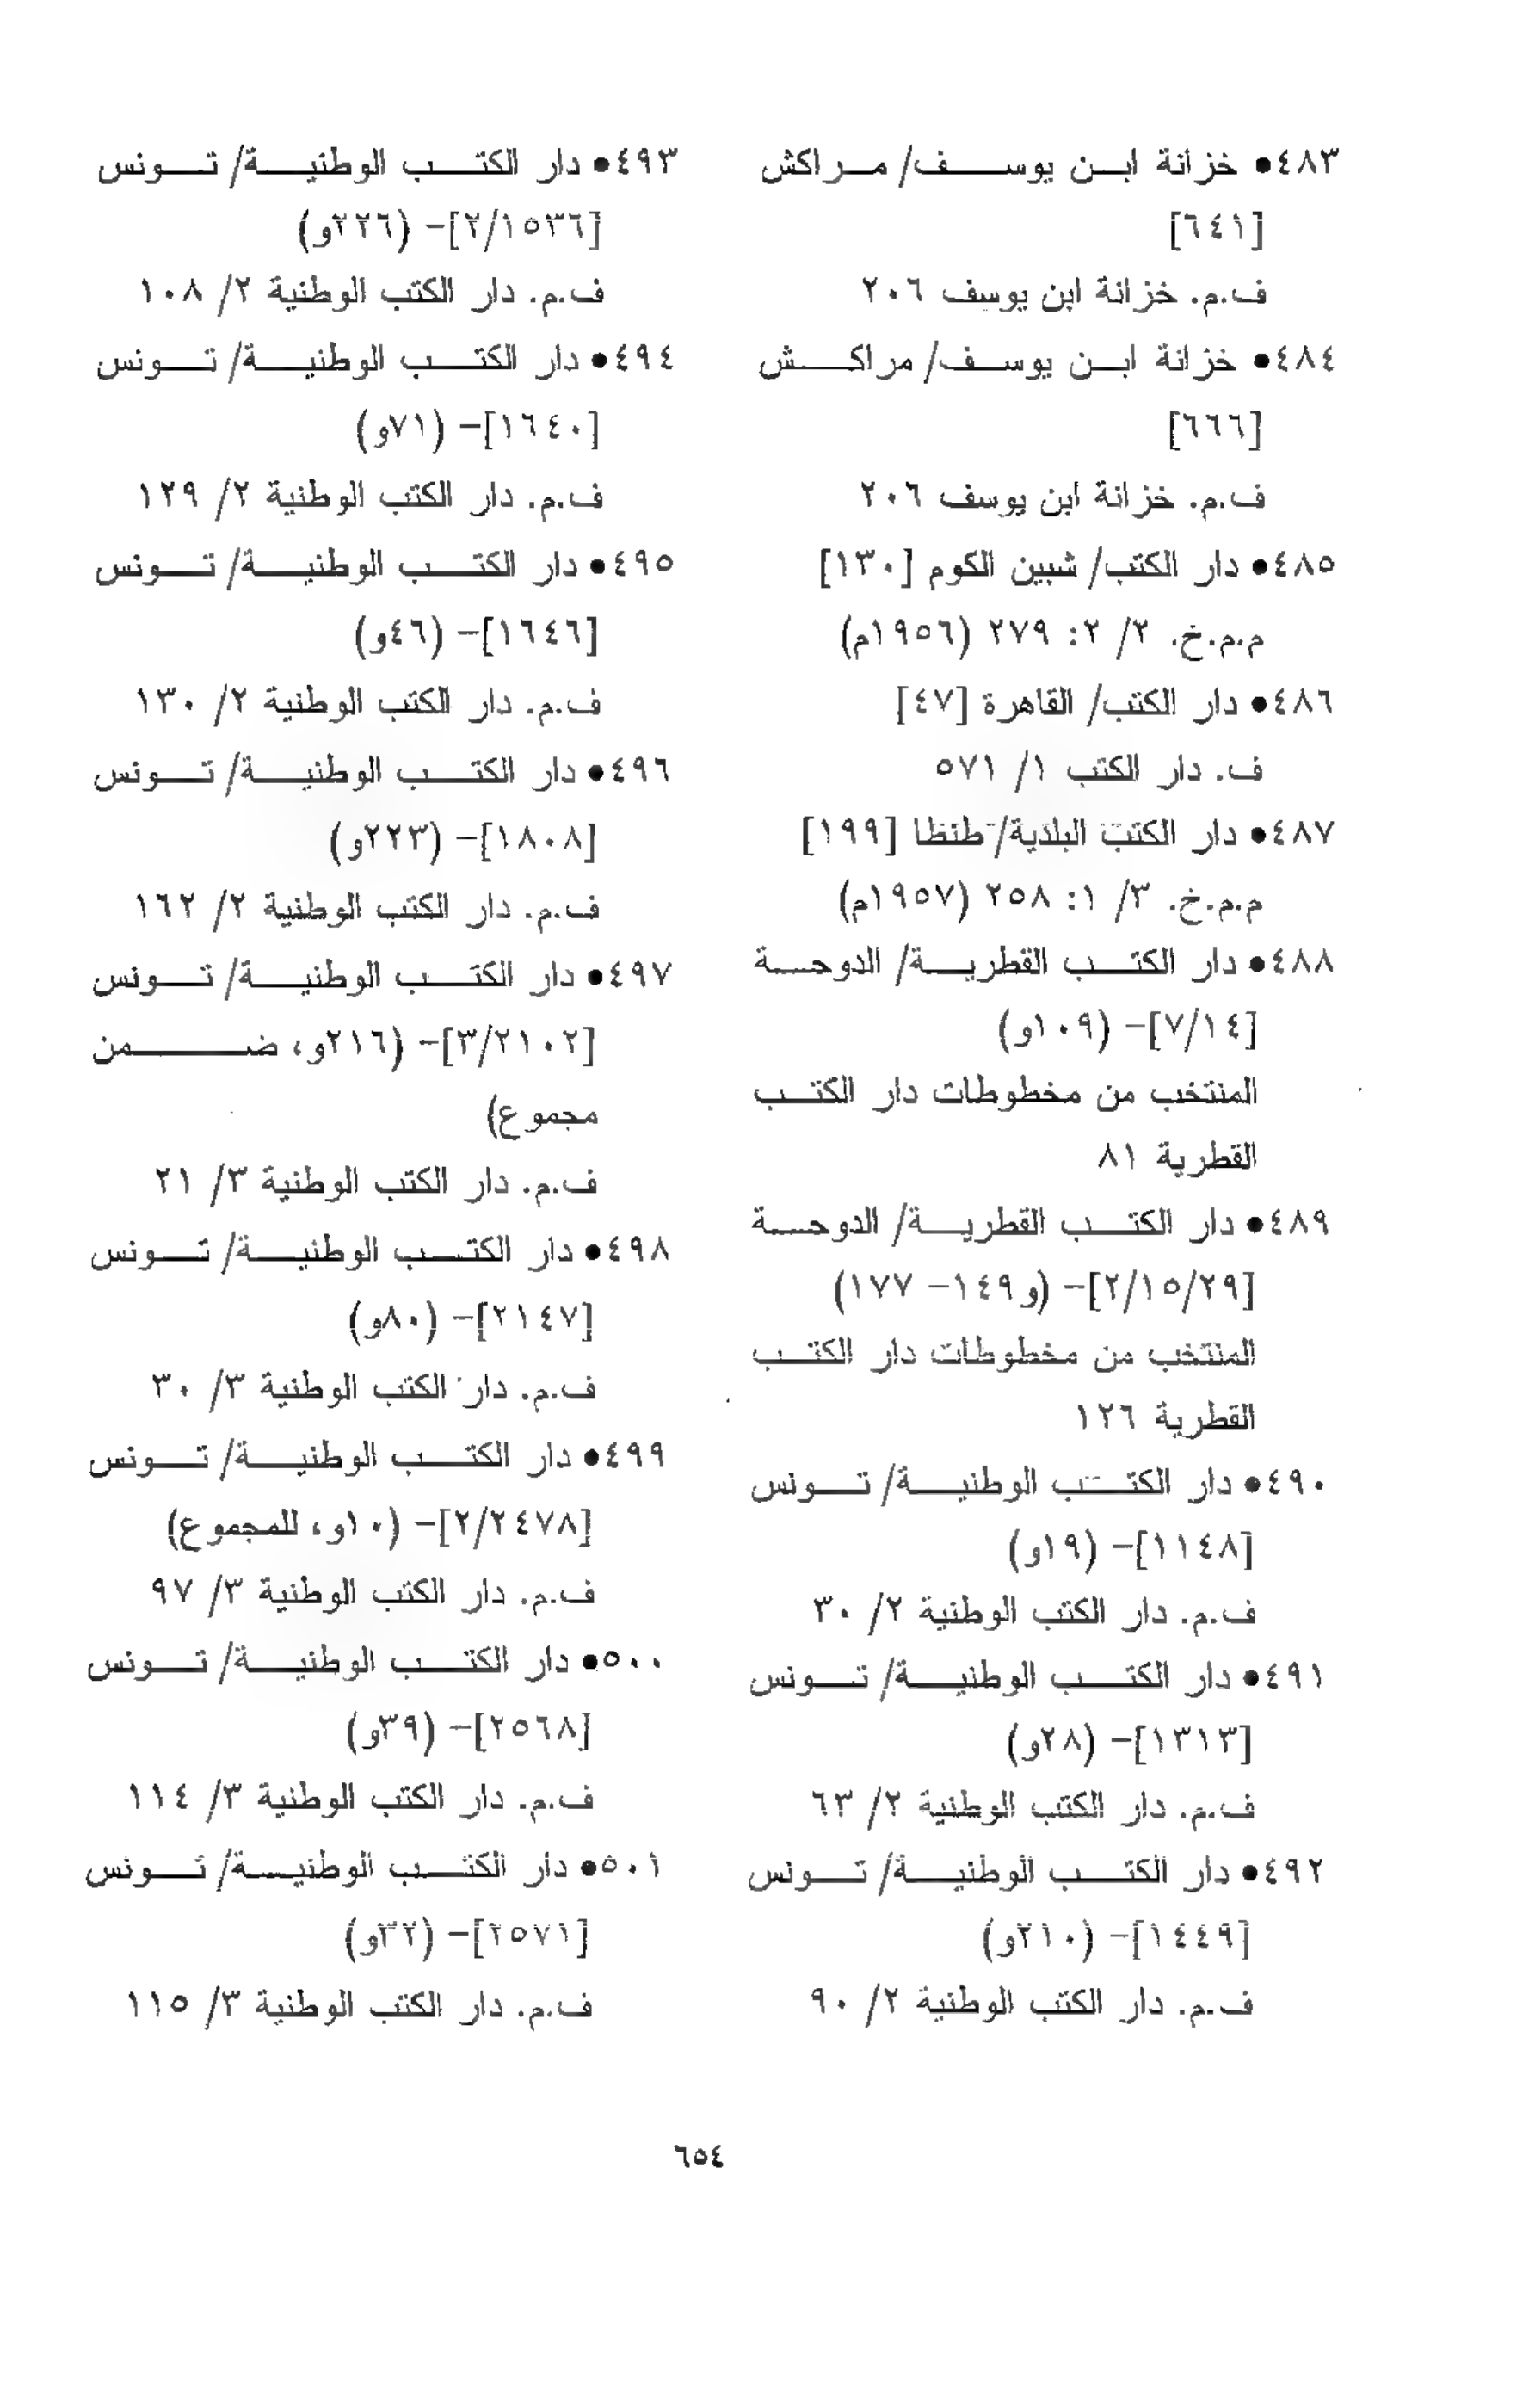 ٤٨٣● خزانة ابن يوسف/ مراكش
[٦٤١]
ف.م. خزانة ابن يوسف ٢٠٦
٤٨٤● خزانة ابن يوسف/ مراكش
[٦٦٦]
ف.م. خزانة ابن يوسف ٢٠٦
٤٨٥● دار الكتب/ شبين الكوم [١٣٠]
م.م.خ. ٢/ ٢: ٢٧٩ (١٩٥٦م)
٤٨٦● دار الكتب/ القاهرة [٤٧]
ف. دار الكتب ١/ ٥٧١
٤٨٧● دار الكتب البلدية/ طنطا [١٩٩]
م.م.خ. ٣/ ١: ٢٥٨ (١٩٥٧م)
٤٨٨● دار الكتب القطرية/ الدوحة
[٧/١٤]- (١٠٩و)
المنتخب من مخطوطات دار الكتب
القطرية ٨١
٤٨٩● دار الكتب القطرية/ الدوحة
[٢/١٥/٢٩]- (و١٤٩- ١٧٧)
المنتخب من مخطوطات دار الكتب
القطرية ١٢٦
٤٩٠● دار الكتب الوطنية/ تونس
[١١٤٨]- (١٩و)
ف.م. دار الكتب الوطنية ٢/ ٣٠
٤٩١● دار الكتب الوطنية/ تونس
[١٣١٣]- (٢٨و)
ف.م. دار الكتب الوطنية ٢/ ٦٣
٤٩٢● دار الكتب الوطنية/ تونس
[١٤٤٩]- (٢١٠و)
ف.م. دار الكتب الوطنية ٢/ ٩٠
٤٩٣● دار الكتب الوطنية/ تونس
[٢/١٥٣٦]- (٢٢٦و)
ف.م. دار الكتب الوطنية ٢/ ١٠٨
٤٩٤● دار الكتب الوطنية/ تونس
[١٦٤٠]- (٧١و)
ف.م. دار الكتب الوطنية ٢/ ١٢٩
٤٩٥● دار الكتب الوطنية/ تونس
[١٦٤٦]- (٤٦و)
ف.م. دار الكتب الوطنية ٢/ ١٣٠
٤٩٦● دار الكتب الوطنية/ تونس
[١٨٠٨]- (٢٢٣و)
ف.م. دار الكتب الوطنية ٢/ ١٦٢
٤٩٧● دار الكتب الوطنية/ تونس
[٣/٢١٠٢]- (٢١٦و، ضمن
مجموع)
ف.م. دار الكتب الوطنية ٣/ ٢١
٤٩٨● دار الكتب الوطنية/ تونس
[٢١٤٧]- (٨٠و)
ف.م. دار الكتب الوطنية ٣/ ٣٠
٤٩٩● دار الكتب الوطنية/ تونس
[٢/٢٤٧٨]- (١٠و، للمجموع)
ف.م. دار الكتب الوطنية ٣/ ٩٧
٥٠٠● دار الكتب الوطنية/ تونس
[٢٥٦٨]- (٣٩و)
ف.م. دار الكتب الوطنية ٣/ ١١٤
٥٠١● دار الكتب الوطنية/ تونس
[٢٥٧١]- (٣٢و)
ف.م. دار الكتب الوطنية ٣/ ١١٥
٦٥٤